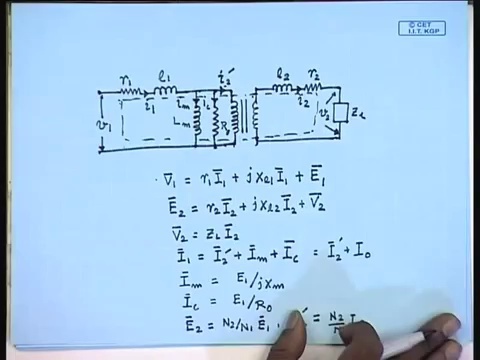 © CET
I.I.T. KGP
r₁ l₁ i₂′ l₂ r₂
i₁ i_m i_c i₂
v₁ L_m R v₂ Z_L
V̄₁ = r₁Ī₁ + jx_l1 Ī₁ + Ē₁
Ē₂ = r₂Ī₂ + jx_l2 Ī₂ + V̄₂
V̄₂ = Z_L Ī₂
Ī₁ = Ī₂′ + Ī_m + Ī_c = Ī₂′ + I₀
Ī_m = E₁/jx_m
Ī_c = E₁/R₀
Ē₂ = N₂/N₁ Ē₁ , ′ = N₂